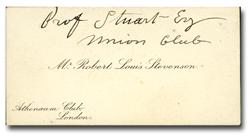 Prof Stuart Esq
Union Club
Mr. Robert Louis Stevenson.
Athenaeum Club
London.